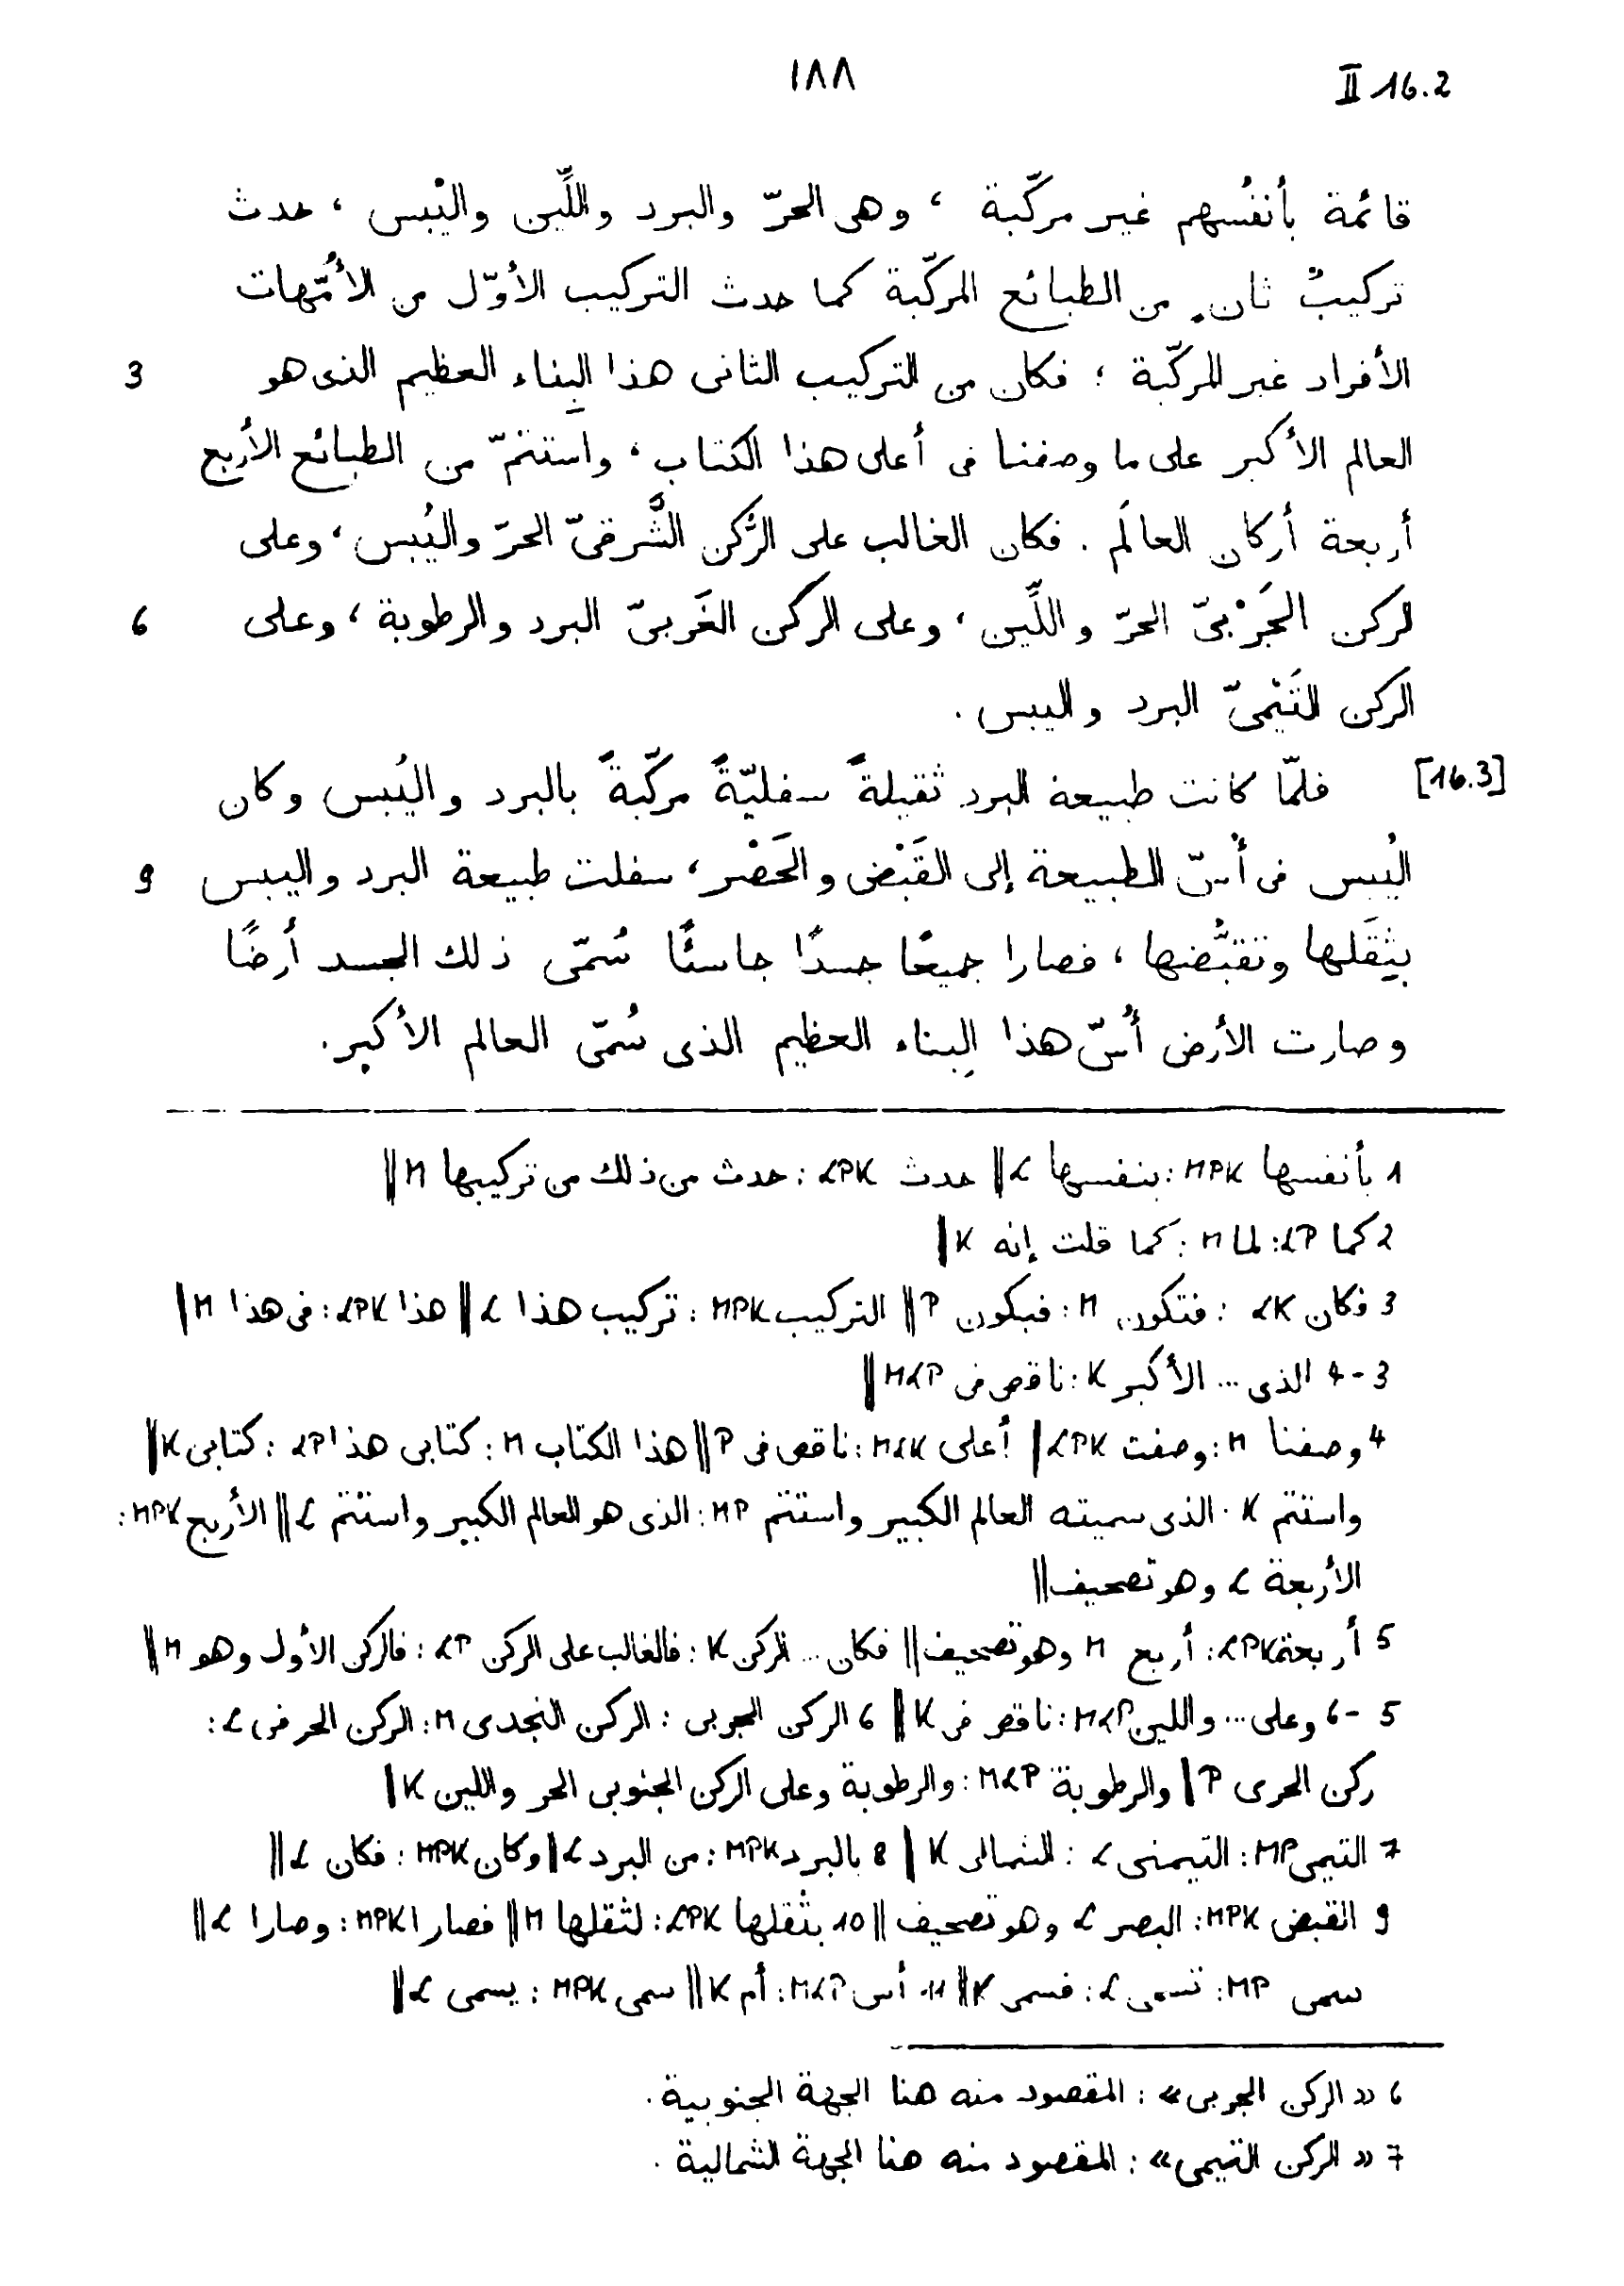 ١٨٨
II 16.2
قائمة بأنفُسهم غير مركّبة ، وهى الحرّ والبرد واللِّين واليُبس ، حدث
تركيبٌ ثانٍ من الطبائع المركّبة كما حدث التركيب الأوّل من الأُمّهات
الأفراد غير المركّبة ؛ فكان من التركيب الثانى هذا البِناء العظيم الذى هو 3
العالم الأكبر على ما وصفنا فى أعلى هذا الكتاب ، واستتمّ من الطبائع الأربع
أربعة أركان العالَم . فكان الغالب على الرُّكن الشَّرقىّ الحرّ واليُبس ، وعلى
الركن الجَرْبىّ الحرّ واللِّين ، وعلى الركن الغَربىّ البرد والرطوبة ، وعلى 6
الركن التَيْمىّ البرد واليبس .
[16.3] فلمّا كانت طبيعة البرد ثقيلةً سفليّةً مركّبةً بالبرد واليُبس وكان
اليُبس فى أُسّ الطبيعة إلى القَبْض والحَصْر ، سفلت طبيعة البرد واليبس 9
بِثِقَلها وتقبُّضها ، فصارا جميعًا جسدًا جاسئًا سُمّى ذلك الجسد أرضًا
وصارت الأرض أُسّ هذا البِناء العظيم الذى سُمّى العالم الأكبر .
1 بأنفسها MPK : بنفسها L || حدث LPK : حدث من ذلك من تركيبها M ||
2 كما LP : لما M : كما قلت إنه K ||
3 فكان LK : فتكون M : فيكون P || التركيب MPK : تركيب هذا L || هذا LPK : فى هذا M ||
3-4 الذى ... الأكبر K : ناقص فى MLP ||
4 وصفنا M : وصفت LPK || أعلى MLK : ناقص فى P || هذا الكتاب M : كتابى هذا LP : كتابى K ||
واستتم K : الذى سميته العالم الكبير واستتم MP : الذى هو العالم الكبير واستتم L || الأربع MPK :
الأربعة L وهو تصحيف ||
5 أربعة LPK : أربع M وهو تصحيف || فكان ... الركن K : فالغالب على الركن LP : فالركن الأول وهو M ||
5-6 وعلى ... واللين MLP : ناقص فى K || 6 الركن الجربى : الركن النجدى M : الركن الحرفى L :
ركن الحرى P || والرطوبة MLP : والرطوبة وعلى الركن الجنوبى الحر واللين K ||
7 التيمى MP : التيمنى L : الشمالى K || 8 بالبرد MPK : من البرد L || وكان MPK : فكان L ||
9 القبض MPK : البصر L وهو تصحيف || 10 بثقلها LPK : لثقلها M || فصارا MPK : وصارا L ||
سمى MP : تسمى L : فسمى K || 11 أس MLP : أم K || سمى MPK : يسمى L ||
6 « الركن الجربى » : المقصود منه هنا الجهة الجنوبية .
7 « الركن التيمى » : المقصود منه هنا الجهة الشمالية .